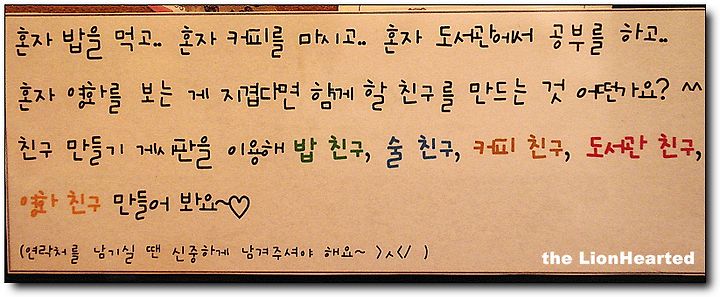 혼자 밥을 먹고.. 혼자 커피를 마시고.. 혼자 도서관에서 공부를 하고..
혼자 영화를 보는 게 지겹다면 함께 할 친구를 만드는 것 어떤가요? ^^
친구 만들기 게시판을 이용해 밥 친구, 술 친구, 커피 친구, 도서관 친구,
영화 친구 만들어 봐요~♡
(연락처를 남기실 땐 신중하게 남겨주셔야 해요~ >ㅅ</ )
the LionHearted